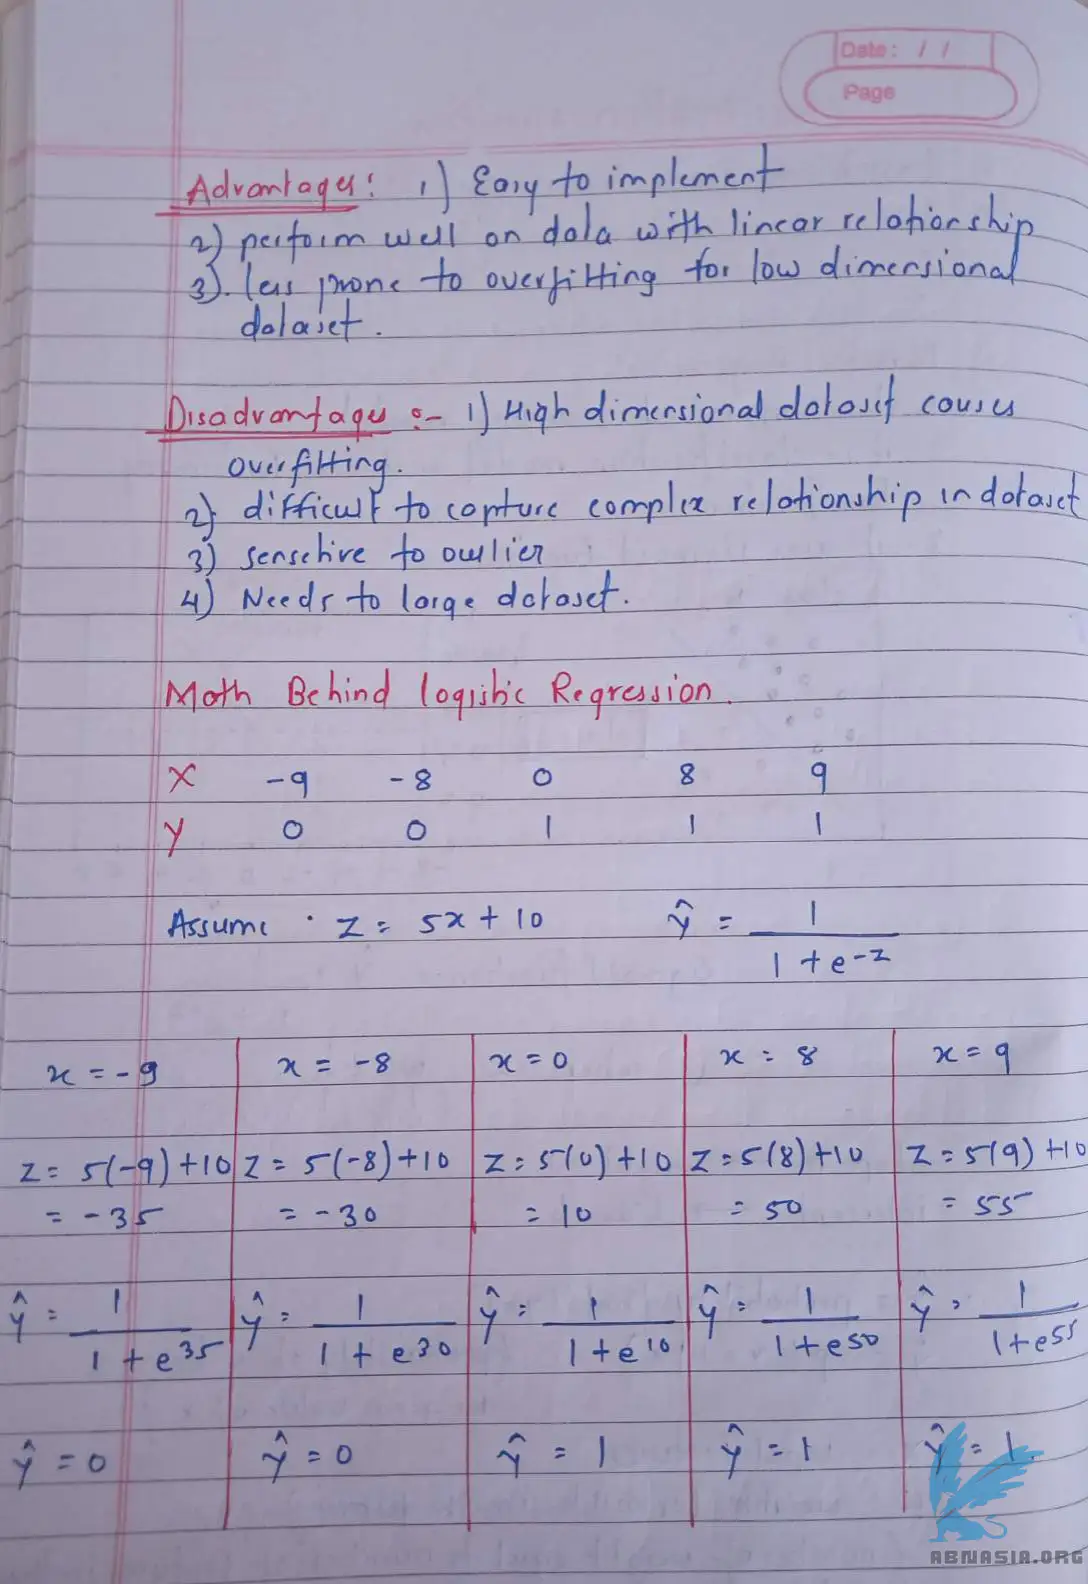 Date: / /
Page
Advantages: 1) Easy to implement
2) perform well on data with linear relationship
3). less prone to overfitting for low dimensional
dataset.
Disadvantages :- 1) High dimensional dataset causes
overfitting.
2) difficult to capture complex relationship in dataset
3) sensetive to outlier
4) Needs to large dataset.
Math Behind logistic Regression.
X -9 -8 0 8 9
Y 0 0 1 1 1
Assume · z = 5x + 10 ŷ = 1 / 1 + e^-z
x = -9 x = -8 x = 0 x = 8 x = 9
z = 5(-9) + 10 z = 5(-8) + 10 z = 5(0) + 10 z = 5(8) + 10 z = 5(9) + 10
= -35 = -30 = 10 = 50 = 55
ŷ = 1 / 1 + e^35 ŷ = 1 / 1 + e^30 ŷ = 1 / 1 + e^10 ŷ = 1 / 1 + e^50 ŷ = 1 / 1 + e^55
ŷ = 0 ŷ = 0 ŷ = 1 ŷ = 1 ŷ = 1.
ABNASIA.ORG